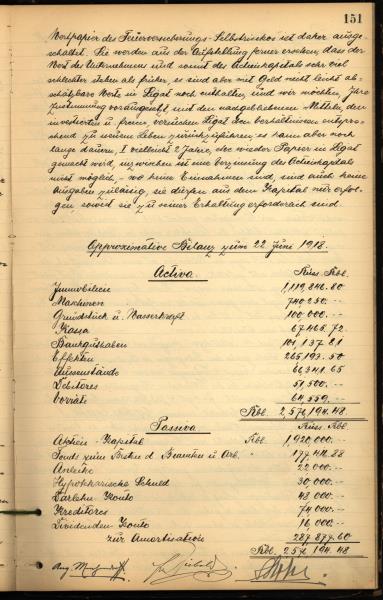 151
Wertpapier des Feuerversicherungs-Selbstrisikos ist daher ausge-
schaltet. Sie werden aus der Aufstellung ferner ersehen, dass der
Wert des Unternehmens und somit des Actienkapitals sehr viel
schlechter stehen als früher, es sind aber mit Geld nicht leicht ab-
schätzbare Werte in Ligat noch enthalten, und wir möchten, Ihre
Zustimmung vorausgesetzt mit den nachgebliebenen Mitteln, den
investierten u. freien, versuchen Ligat den Verhältnissen entspre-
chend zu neuem Leben zurückzuführen; es kann aber noch
lange dauern, vielleicht 2 Jahre, ehe wieder Papier in Ligat
gemacht wird, inzwischen ist eine Verzinsung des Actienkapitals
nicht möglich - wo keine Einnahmen sind, sind auch keine
Ausgaben zulässig, sie dürfen aus dem Kapital nur erfol-
gen, soweit sie zu seiner Erhaltung erforderlich sind.
Approximative Bilanz zum 22 Juni 1918.
Activa. Russ. Rbl.
Immobilien 1,119,846.80
Maschinen 740,250.--
Grundstück u. Wasserkraft 100,000.--
Kassa 67,465.72
Bankguthaben 101,137.81
Effekten 265,193.50
Aussenstände 66,341.65
Debitores 51,500.--
Vorräte 64,559.--
Rbl. 2,576,194.48
Passiva Russ. Rbl.
Aktien-Kapital Rbl. 1,920,000.--
Fonds zum Besten d Beamten u Arb. " 177,411.88
Anleihe 22,000.--
Hypothekarische Schuld 30,000.--
Darlehn Konto 48,000.--
Kreditores 74,000.--
Dividenden-Konto 16,000.--
zur Amortisation 287,877.60
Rbl. 2,576,194.48
Aug.